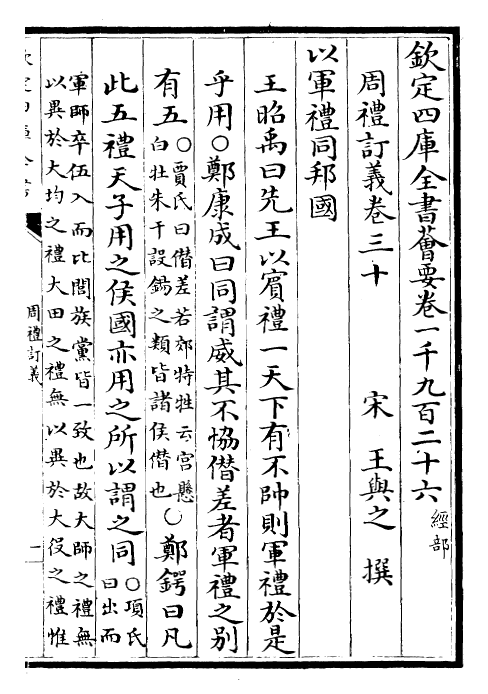 欽定四庫全書薈要卷一千九百二十六經部
周禮訂義卷三十
宋 王與之 撰
以軍禮同邦國
王昭禹曰先王以賓禮一天下有不帥則軍禮於是
乎用○鄭康成曰同謂威其不協僣差者軍禮之别
有五○賈氏曰僣差若郊特牲云宮懸
白牡朱干設錫之類皆諸侯僣也○鄭鍔曰凡
此五禮天子用之侯國亦用之所以謂之同○項氏
曰出而
軍師卒伍入而比閭族黨皆一致也故大師之禮無
以異於大均之禮大田之禮無以異於大役之禮惟
欽定四庫全書
周禮訂義
一